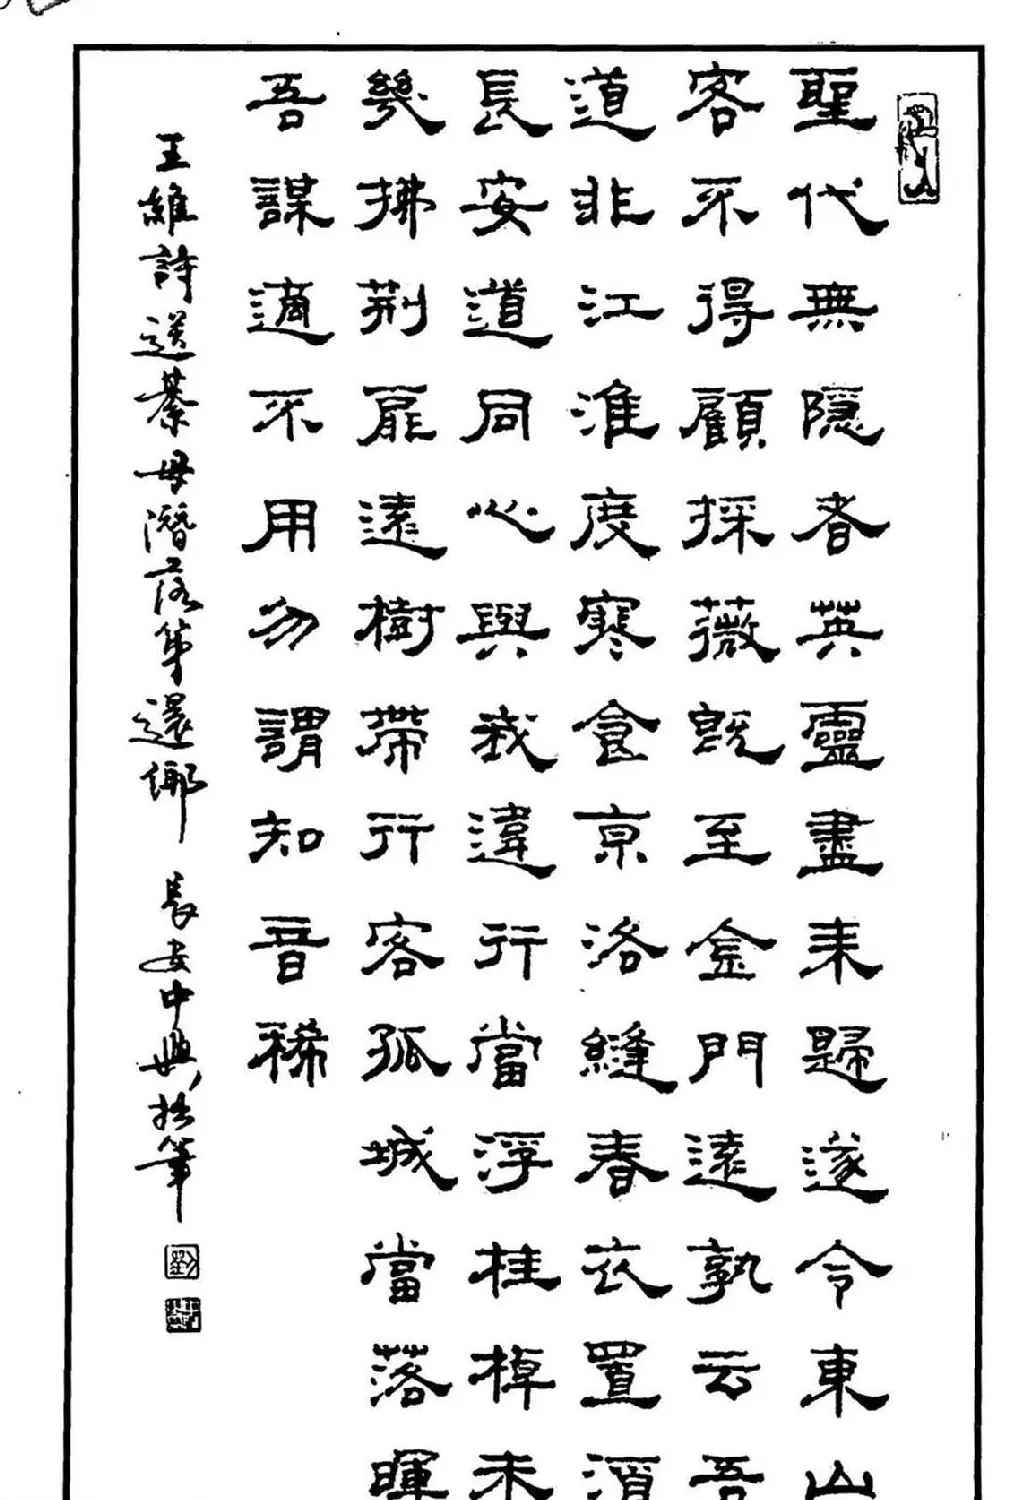 聖代無隱者英靈盡来歸遂令東山
客不得顧採薇既至金門遠孰云吾
道非江淮度寒食京洛縫春衣置酒
長安道同心與我違行當浮桂棹未
幾拂荊扉遠樹帶行客孤城當落暉
吾謀適不用勿謂知音稀
王維詩送綦毋潛落第還鄉 長安中興拙筆
劉